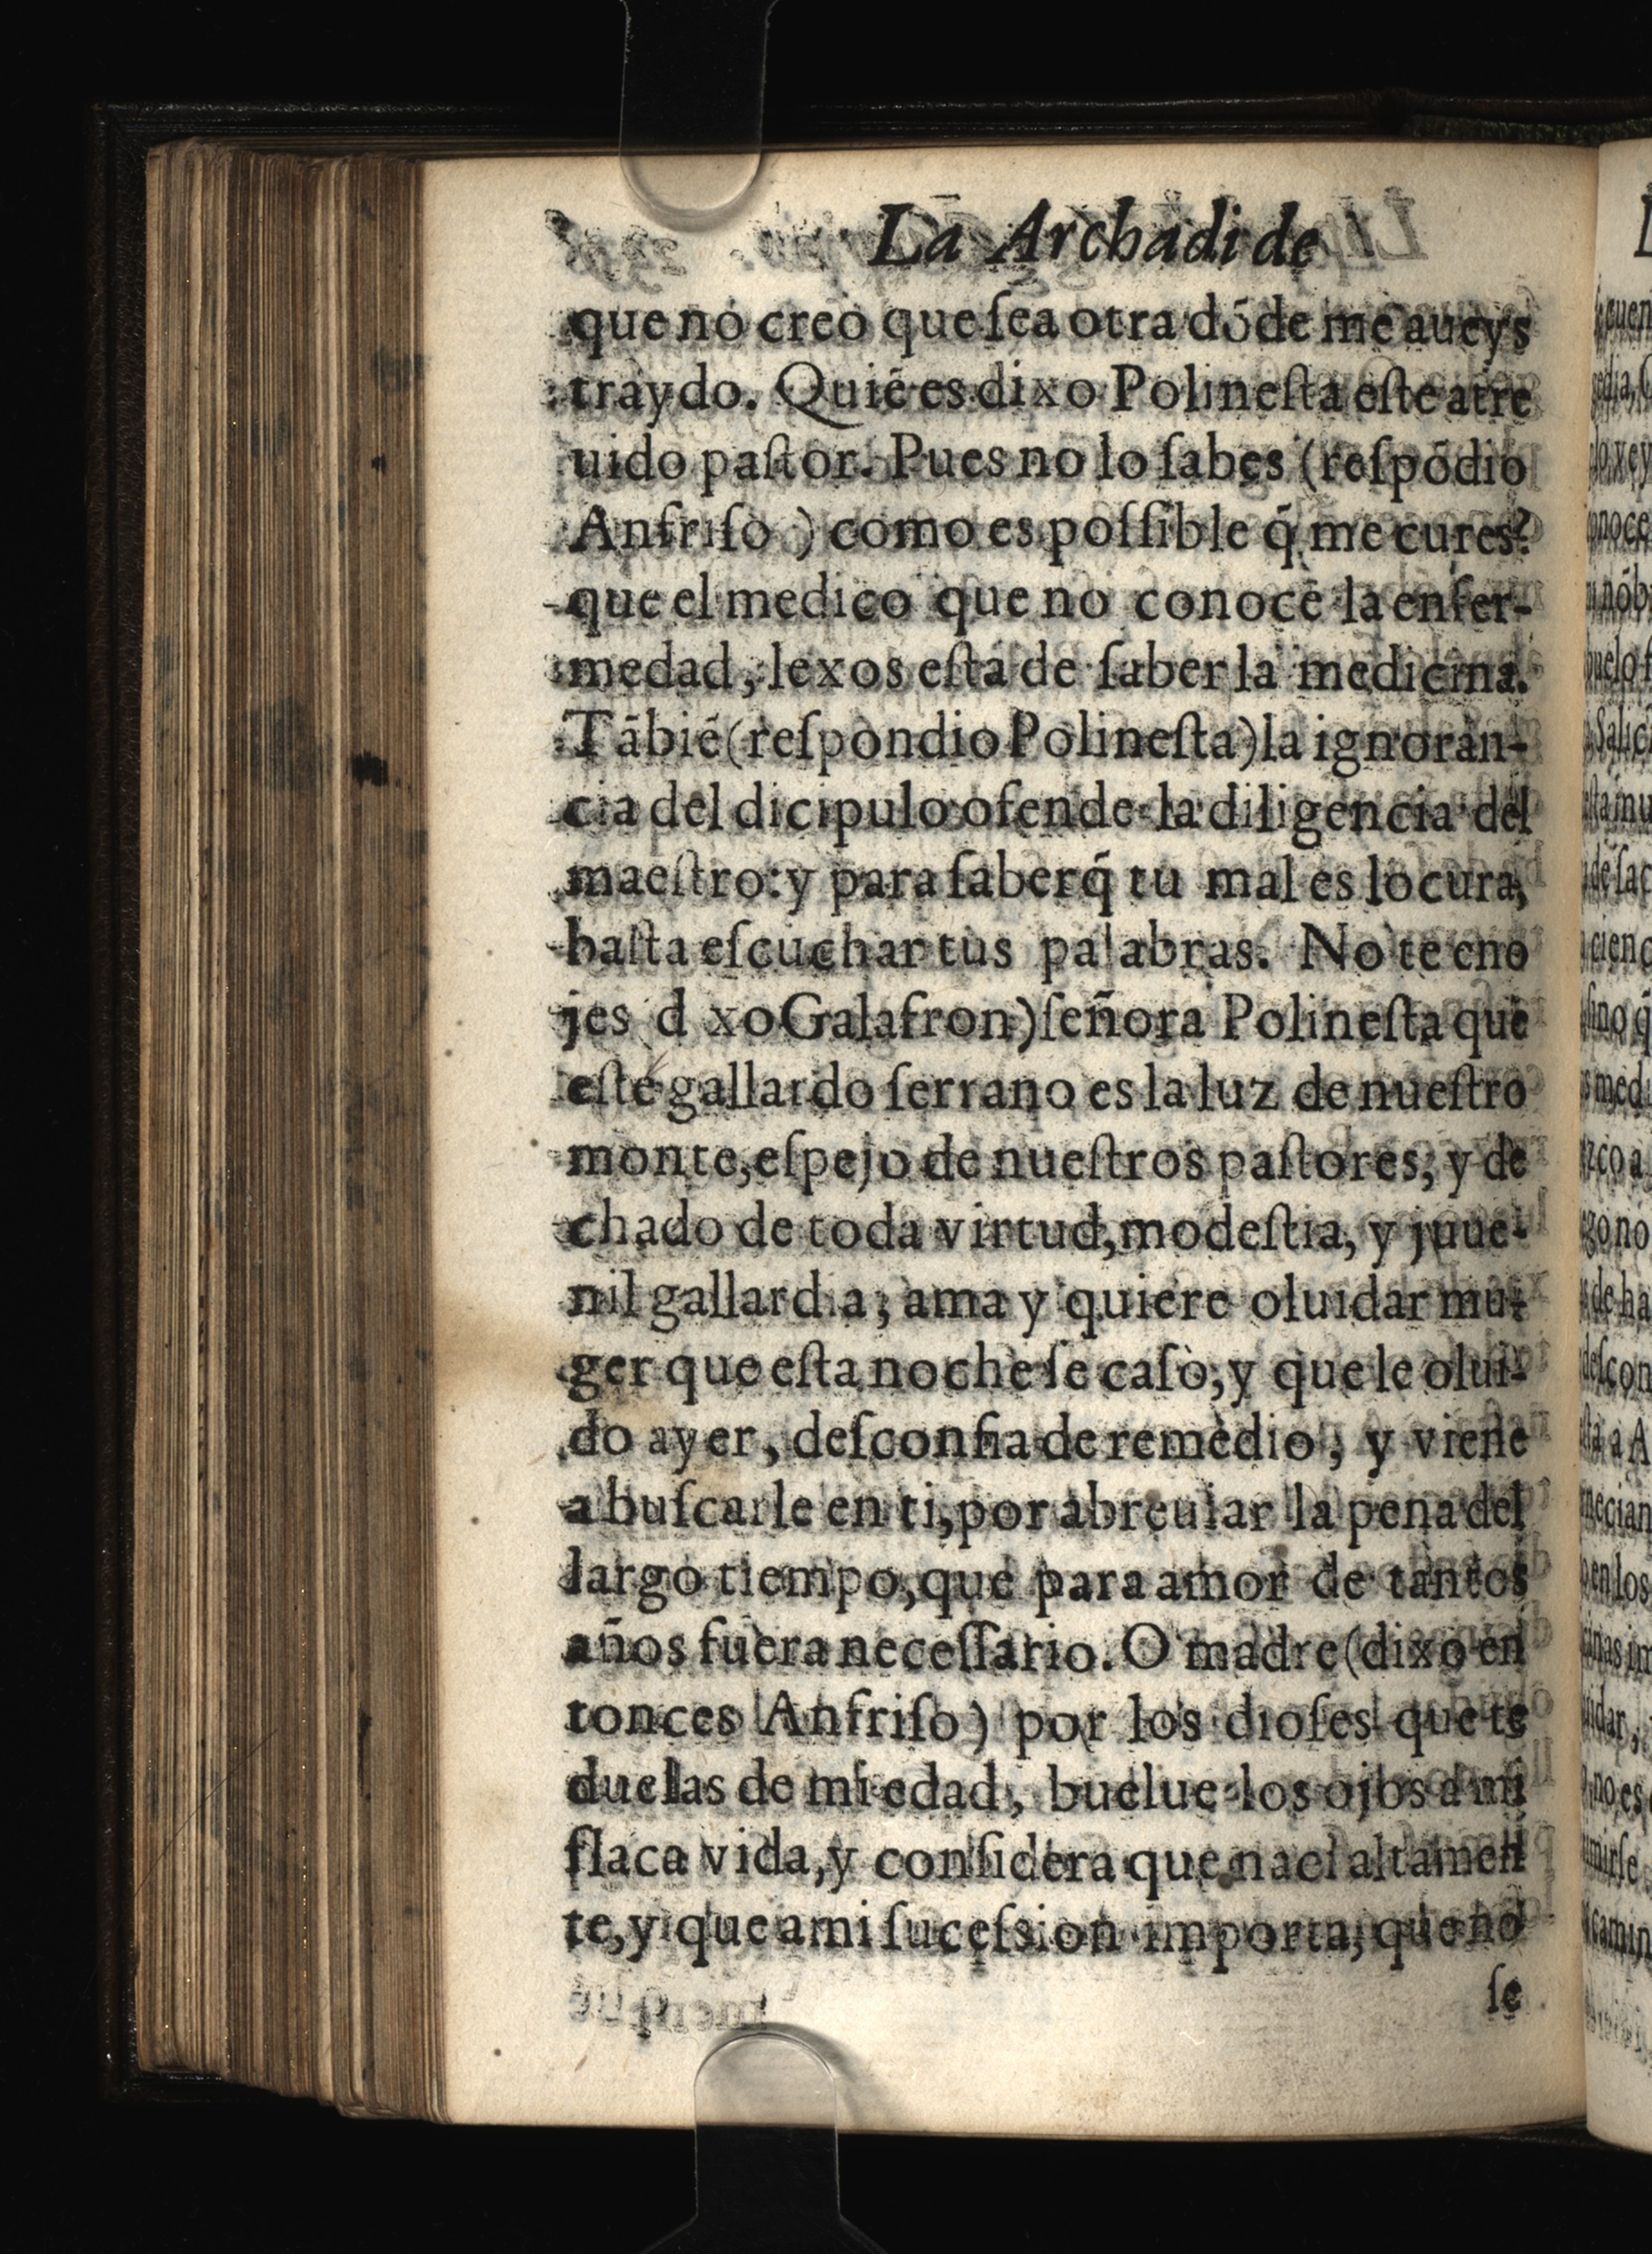 La Archadi de
que no creo que ſea otra dõde me aueys
traydo. Quiẽ es dixo Polineſta eſte atre
uido paſtor. Pues no lo ſabes (reſpõdio
Anfriſo ) como es poſſible q̃ me cures?
que el medico que no conoce la enfer-
medad, lexos eſta de ſaber la medicina.
Tãbiẽ (reſpondio Polineſta) la ignoran-
cia del dicipulo ofende la diligencia del
maeſtro: y para ſaber q̃ tu mal es locura,
baſta eſcuchar tus palabras. No te eno
jes d xo Galafron) ſeñora Polineſta que
eſte gallardo ſerrano es la luz de nueſtro
monte, eſpejo de nueſtros paſtores, y de
chado de toda virtud, modeſtia, y juue-
nil gallardia, ama y quiere oluidar mu-
ger que eſta noche ſe caſò, y que le olui-
do ayer, deſconfia de remedio, y viene
a buſcarle en ti, por abreuiar la pena del
largo tiempo, que para amor de tantos
años fuera neceſſario. O madre (dixo en
tonces Anfriſo) por los dioſes que te
duelas de mi edad, buelue los ojos a mi
flaca vida, y conſidera que naci altamen
te, y que a mi ſuceſsion importa, que no
ſe